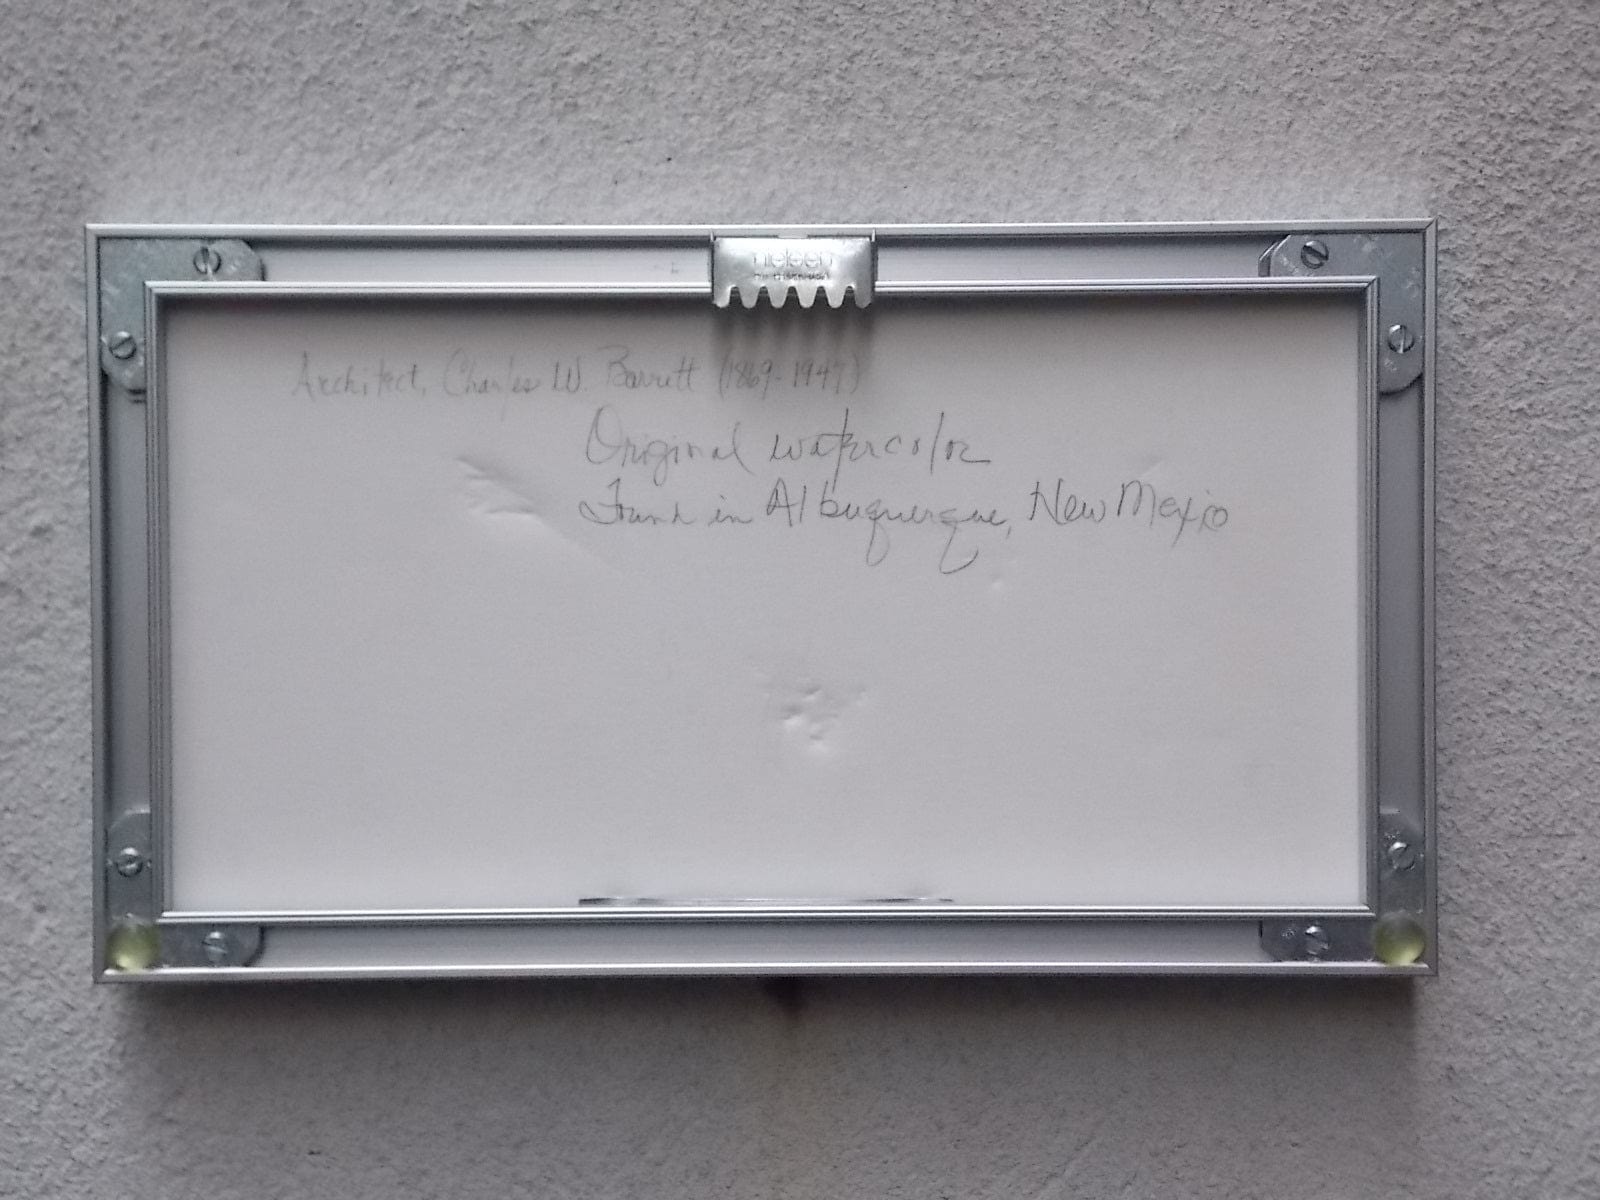 nielsen
Architect, Charles W. Barrett (1869-1947)
Original watercolor
Found in Albuquerque, New Mexico